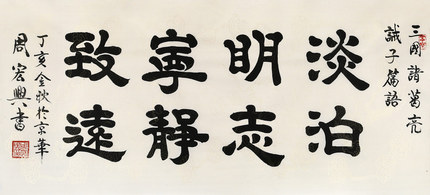 三國諸葛亮
誡子篇語
淡泊
明志
寧靜
致遠
丁亥金秋於京華
周宏興書